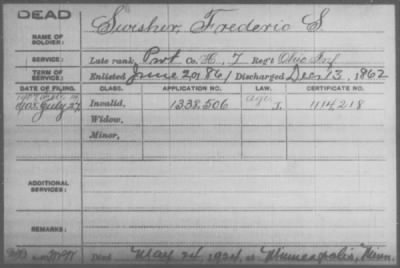 DEAD
NAME OF SOLDIER: Swisher, Frederic S.
SERVICE: Late rank, Pvt Co. H, 7 Reg't Ohio Inf
TERM OF SERVICE: Enlisted June 20, 1861 Discharged Dec. 13, 1862
DATE OF FILING. CLASS. APPLICATION NO. LAW. CERTIFICATE NO.
July 27 Invalid, 1338,506 age J. 1114,218
Widow,
Minor,
ADDITIONAL SERVICES:
REMARKS:
Died May 24 1924, at Minneapolis, Minn.